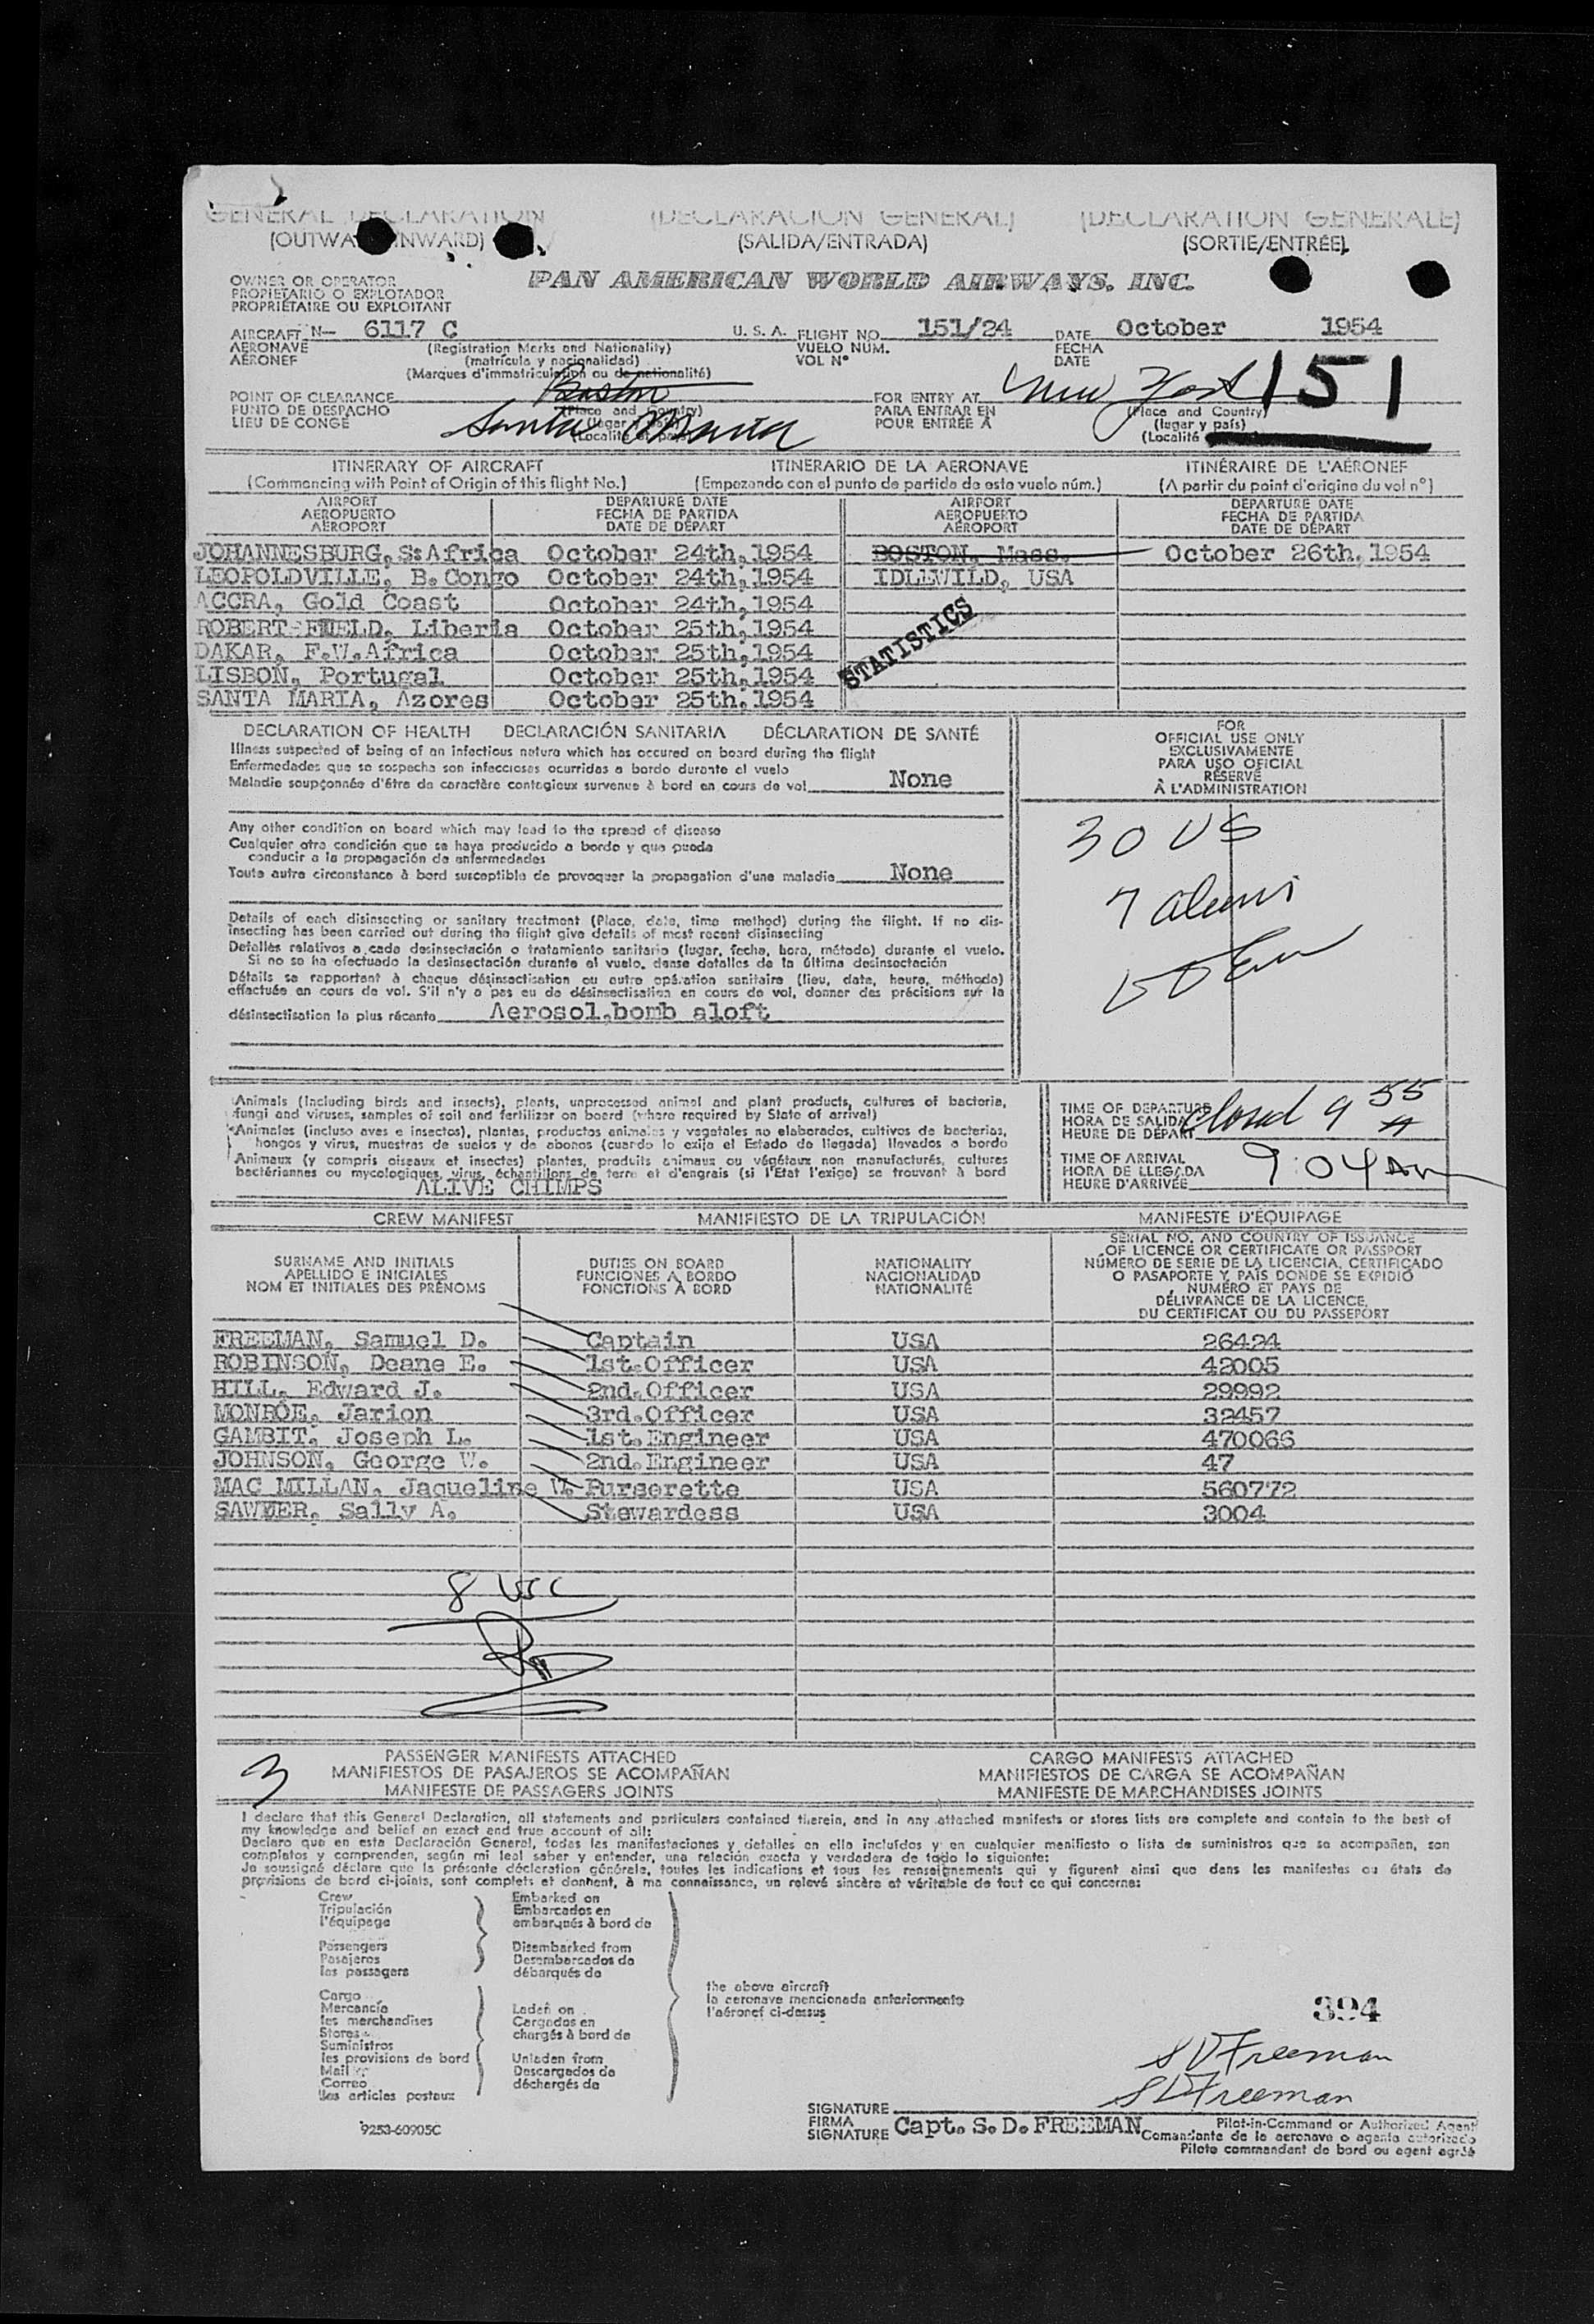 GENERAL DECLARATION (DECLARACION GENERAL) (DECLARATION GENERALE)
(OUTWA INWARD) (SALIDA/ENTRADA) (SORTIE/ENTRÉE)
OWNER OR OPERATOR
PROPIETARIO O EXPLOTADOR
PROPRIÉTAIRE OU EXPLOITANT
PAN AMERICAN WORLD AIRWAYS, INC.
AIRCRAFT N- 6117 C U. S. A. FLIGHT NO. 151/24 DATE October 1954
AERONAVE (Registration Marks and Nationality) VUELO NÚM. FECHA
AÉRONEF (matrícula y nacionalidad) VOL N° DATE
(Marques d'immatriculation ou de nationalité)
Boston New York 151
POINT OF CLEARANCE (Place and Country) FOR ENTRY AT (Place and Country)
PUNTO DE DESPACHO (lugar y país) PARA ENTRAR EN (lugar y país)
LIEU DE CONGÉ (Localité et pays) POUR ENTRÉE À (Localité
Santa Maria
ITINERARY OF AIRCRAFT ITINERARIO DE LA AERONAVE ITINÉRAIRE DE L'AÉRONEF
(Commencing with Point of Origin of this flight No.) (Empezando con el punto de partida de este vuelo núm.) (A partir du point d'origine du vol n°)
AIRPORT DEPARTURE DATE AIRPORT DEPARTURE DATE
AEROPUERTO FECHA DE PARTIDA AEROPUERTO FECHA DE PARTIDA
AÉROPORT DATE DE DÉPART AÉROPORT DATE DE DÉPART
JOHANNESBURG, S:Africa October 24th, 1954 BOSTON, Mass. October 26th, 1954
LEOPOLDVILLE, B. Congo October 24th, 1954 IDLEWILD, USA
ACCRA, Gold Coast October 24th, 1954
ROBERT FIELD, Liberia October 25th, 1954
DAKAR, F.W.Africa October 25th, 1954
LISBON, Portugal October 25th, 1954
SANTA MARIA, Azores October 25th, 1954
STATISTICS
DECLARATION OF HEALTH DECLARACIÓN SANITARIA DÉCLARATION DE SANTÉ
Illness suspected of being of an infectious nature which has occured on board during the flight
Enfermedades que se sospecha son infecciosas ocurridas a bordo durante el vuelo
Maladie soupçonnée d'être de caractère contagieux survenue à bord en cours de vol None
Any other condition on board which may lead to the spread of disease
Cualquier otra condición que se haya producido a bordo y que pueda
conducir a la propagación de enfermedades
Toute autre circonstance à bord susceptible de provoquer la propagation d'une maladie None
Details of each disinsecting or sanitary treatment (Place, date, time method) during the flight. If no dis-
insecting has been carried out during the flight give details of most recent disinsecting
Detalles relativos a cada desinsectación o tratamiento sanitario (lugar, fecha, hora, método) durante el vuelo.
Si no se ha efectuado la desinsectación durante el vuelo, dense detalles de la última desinsectación
Détails se rapportant à chaque désinsectisation ou autre opération sanitaire (lieu, date, heure, méthode)
effectuée en cours de vol. S'il n'y a pas eu de désinsectisation en cours de vol, donner des précisions sur la
désinsectisation la plus récente Aerosol bomb aloft
FOR
OFFICIAL USE ONLY
EXCLUSIVAMENTE
PARA USO OFICIAL
RÉSERVÉ
À L'ADMINISTRATION
30 US
7 aliens
Animals (Including birds and insects), plants, unprocessed animal and plant products, cultures of bacteria,
fungi and viruses, samples of soil and fertilizer on board (where required by State of arrival)
Animales (incluso aves e insectos), plantas, productos animales y vegetales no elaborados, cultivos de bacterias,
hongos y virus, muestras de suelos y de abonos (cuando lo exija el Estado de llegada) llevados a bordo
Animaux (y compris oiseaux et insectes) plantes, produits animaux ou végétaux non manufacturés, cultures
bactériennes ou mycologiques, virus, échantillons de terre et d'engrais (si l'Etat l'exige) se trouvant à bord
ALIVE CHIMPS
TIME OF DEPARTURE
HORA DE SALIDA closed 9 55 A
HEURE DE DÉPART
TIME OF ARRIVAL
HORA DE LLEGADA 9:04 AM
HEURE D'ARRIVÉE
CREW MANIFEST MANIFIESTO DE LA TRIPULACIÓN MANIFESTE D'ÉQUIPAGE
SURNAME AND INITIALS
APELLIDO E INICIALES
NOM ET INITIALES DES PRÉNOMS
DUTIES ON BOARD
FUNCIONES A BORDO
FONCTIONS À BORD
NATIONALITY
NACIONALIDAD
NATIONALITÉ
SERIAL NO. AND COUNTRY OF ISSUANCE
OF LICENCE OR CERTIFICATE OR PASSPORT
NÚMERO DE SERIE DE LA LICENCIA, CERTIFICADO
O PASAPORTE Y PAÍS DONDE SE EXPIDIÓ
NUMÉRO ET PAYS DE
DÉLIVRANCE DE LA LICENCE,
DU CERTIFICAT OU DU PASSEPORT
FREEMAN, Samuel D. Captain USA 26424
ROBINSON, Deane E. 1st.Officer USA 42005
HILL, Edward J. 2nd.Officer USA 29992
MONROE, Jarion 3rd.Officer USA 32457
GAMBIT, Joseph L. 1st.Engineer USA 470066
JOHNSON, George W. 2nd.Engineer USA 47
MAC MILLAN, Jaqueline W. Purserette USA 560772
SAWYER, Sally A. Stewardess USA 3004
8 USC
3
PASSENGER MANIFESTS ATTACHED CARGO MANIFESTS ATTACHED
MANIFIESTOS DE PASAJEROS SE ACOMPAÑAN MANIFIESTOS DE CARGA SE ACOMPAÑAN
MANIFESTE DE PASSAGERS JOINTS MANIFESTE DE MARCHANDISES JOINTS
I declare that this General Declaration, all statements and particulars contained therein, and in any attached manifests or stores lists are complete and contain to the best of
my knowledge and belief an exact and true account of all:
Declaro que en esta Declaración General, todas las manifestaciones y detalles en ella incluídos y en cualquier manifiesto o lista de suministros que se acompañen, son
completos y comprenden, según mi leal saber y entender, una relación exacta y verdadera de todo lo siguiente:
Je soussigné déclare que la présente déclaration générale, toutes les indications et tous les renseignements qui y figurent ainsi que dans les manifestes ou états de
provisions de bord ci-joints, sont complets et donnent, à ma connaissance, un relevé sincère et véritable de tout ce qui concerne:
Crew Embarked on
Tripulación Embarcados en
l'équipage embarqués à bord de
Passengers Disembarked from
Pasajeros Desembarcados de
les passagers débarqués de
the above aircraft
la aeronave mencionada anteriormente
l'aéronef ci-dessus
Cargo
Mercancía Laden on
les merchandises Cargados en
Stores chargés à bord de
Suministros
les provisions de bord Unladen from
Mail Descargados de
Correo déchargés de
les articles postaux
394
S D Freeman
S D Freeman
SIGNATURE
FIRMA
SIGNATURE
Capt. S. D. FREEMAN
Pilot-in-Command or Authorized Agent
Comandante de la aeronave o agente autorizado
Pilote commandant de bord ou agent agréé
9253-60905C